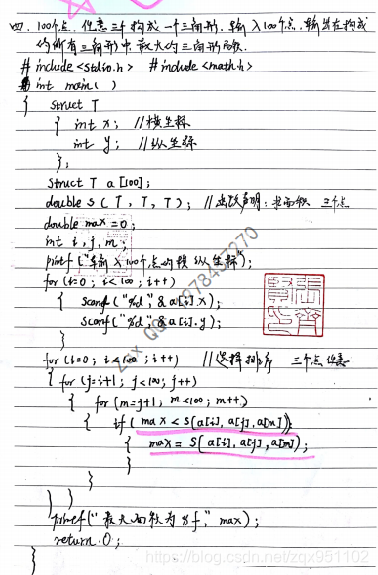 四. 100个点, 任意三个构成一个三角形. 输入100个点, 输出在构成
的所有三角形中, 最大的三角形面积.
# include <stdio.h> # include <math.h>
int main( )
{ struct T
{ int x; //横坐标
int y; //纵坐标
};
struct T a[100];
double s( T, T, T); //函数声明: 求面积 三个点
double max = 0;
int i, j, m;
printf("输入100个点的横纵坐标");
for (i=0; i<100; i++)
{ scanf("%d" & a[i].x);
scanf("%d", & a[i].y);
}
for (i=0; i<100; i++) //选择排序 三个点任意
{ for (j=i+1; j<100; j++)
{ for (m=j+1, m<100; m++)
{ if ( max < s(a[i], a[j], a[m]))
{ max = s(a[i], a[j], a[m]);
}
}
}
}
printf("最大面积为 %f," max);
return 0;
}
https://blog.csdn.net/zqx951102